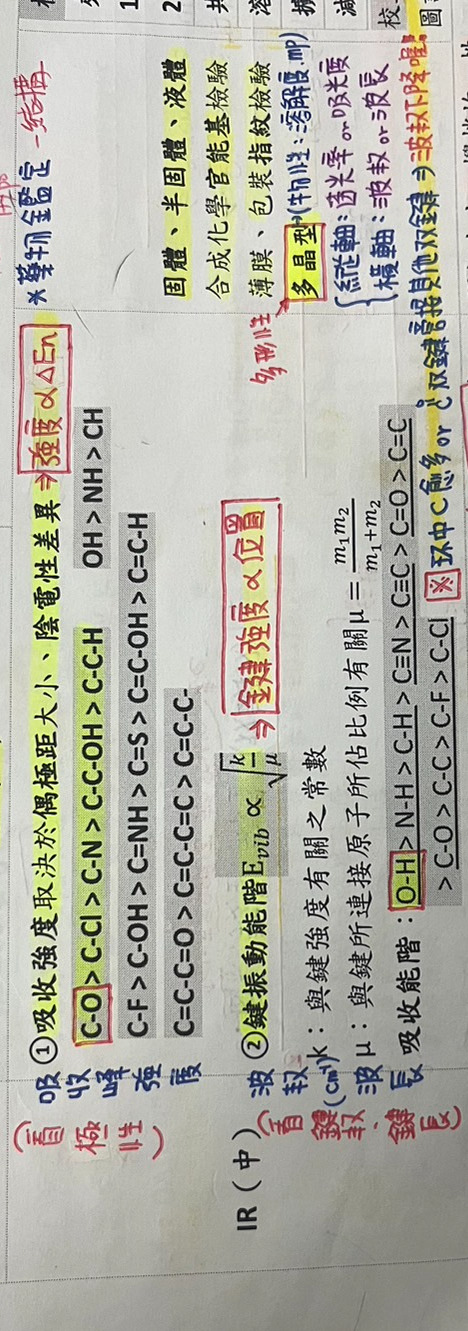 IR（中）
(看極性)
吸收峰強度
①吸收強度取決於偶極距大小、陰電性差異 ⇒ 強度 ∝ ΔEn
C-O > C-Cl > C-N > C-C-OH > C-C-H OH > NH > CH
C-F > C-OH > C=NH > C=S > C=C-OH > C=C-H
C=C-C=O > C=C-C=C > C=C-C-
(看鍵數、鍵長)
波數(cm⁻¹)波長
②鍵振動能階 Evib ∝ √k/μ ⇒ 鍵強度 ∝ 位置
k：與鍵強度有關之常數
μ：與鍵所連接原子所佔比例有關 μ = m1m2/m1+m2
吸收能階：O-H > N-H > C-H > C≡N > C≡C > C=O > C=C
> C-O > C-C > C-F > C-Cl
※環中C愈多or 双鍵旁接其他双鍵 → 波数下降喔!
*藥物鑑定 - 結構
固體、半固體、液體
合成化學官能基檢驗
薄膜、包裝指紋檢驗
多形性
多晶型(物性：溶解度.mp)
縱軸：透光率or吸光度
橫軸：波数or波長
1
2
校
圖